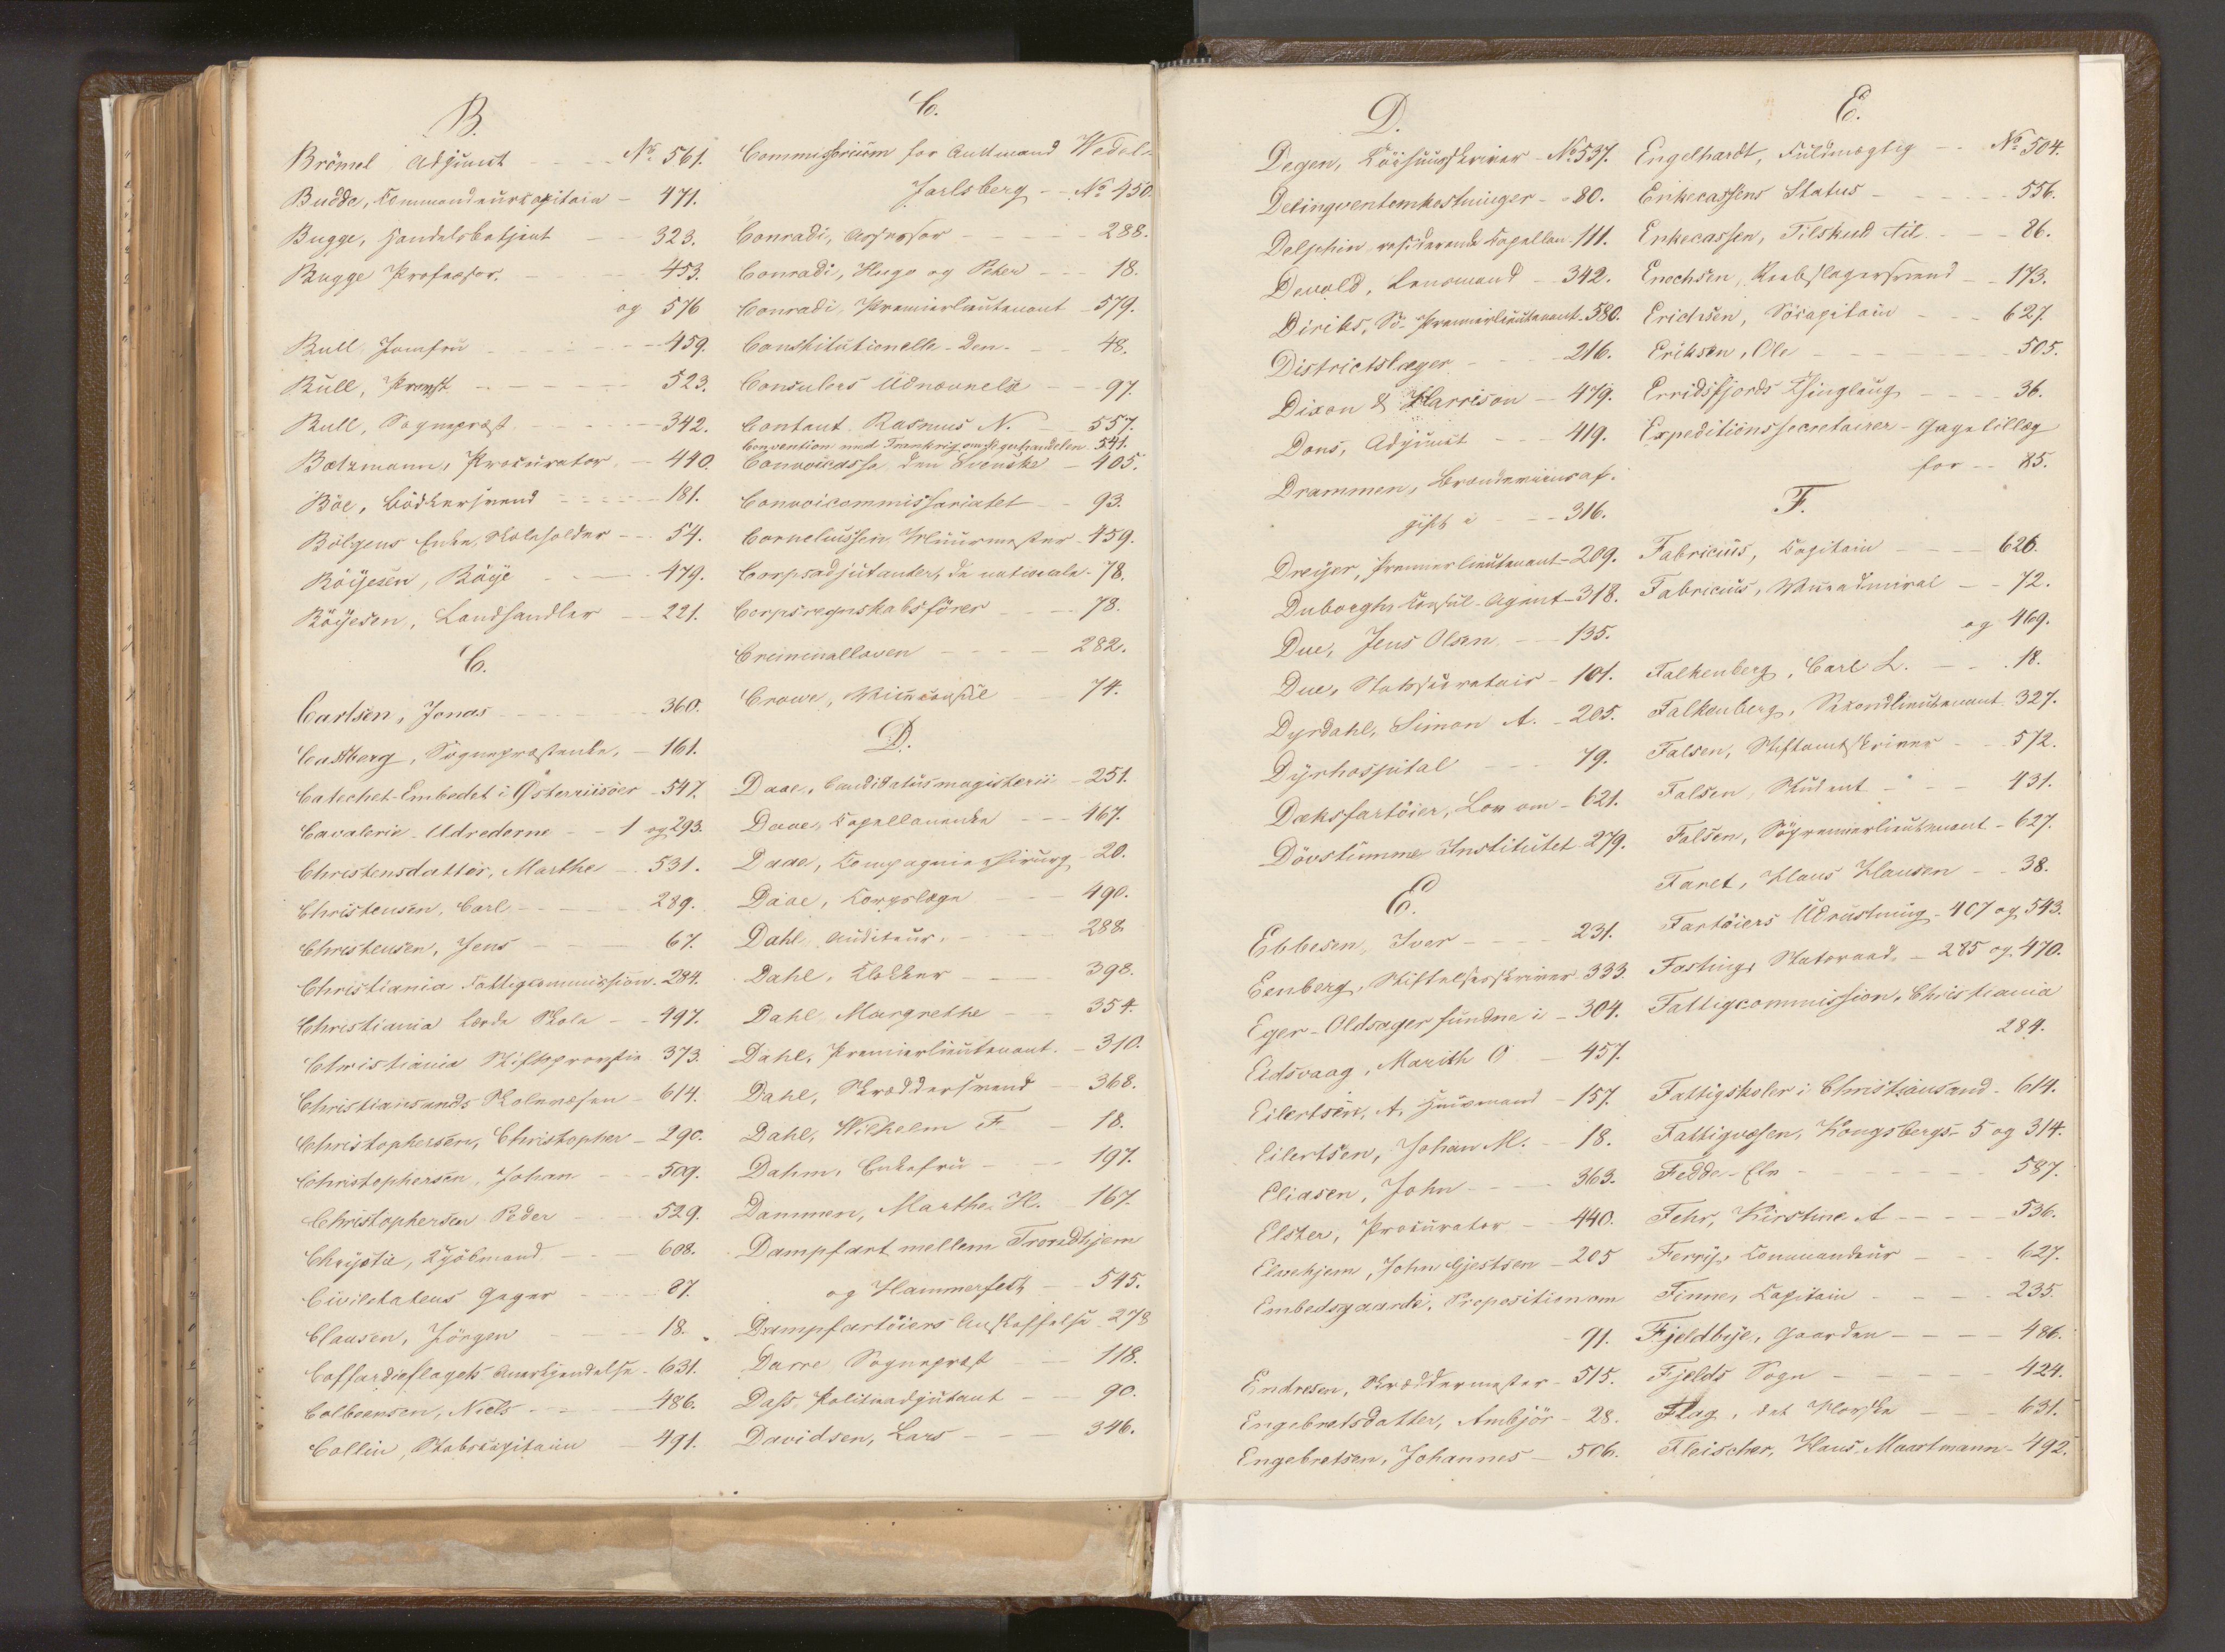 B.
Brömel Adjunct - - - No. 561.
Budde, Commandeurcapitain - 471.
Bugge, Handelsbetjent - - 323.
Bugge Professor. - - - 453.
og 576
Bull Jomfru - - - - - 459.
Bull, Provst - - - - - 523.
Bull, Sognepræst - - - 342.
Bætzmann, Procurator - 440.
Böe, Bödkersvend - - - 181.
Bölgens Enke, Skoleholder - - 54.
Böijesen, Böije - - - 479.
Böijesen, Landhandler - - 221.
C.
Carlsen, Jonas - - - - 360.
Castberg, Sognepræstenke, - 161.
Catechet-Embedet i Österriisöer - 547.
Cavalerie-Udrederne - - 1 og 293.
Christensdatter, Marthe - 531.
Christensen, Carl - - - 289.
Christensen, Jens - - - 67.
Christiania Fattigcommission. 284.
Christiania lærde Skole - - 497.
Christiania Stiftsprovstie 373.
Christiansands Skolevæsen - 614.
Christophersen, Christopher - 290.
Christophersen, Johan - - 509.
Christophersen Peder - - 529.
Chrystie, Kjöbmand - - 608.
Civiletatens Gager - - - 87.
Clausen, Jörgen - - - 18.
Coffardieflagets Anerkjendelse - 631.
Colbeensen, Niels - - - 486.
Collin, Stabscapitain - 491.
C.
Commissorium for Amtmand Wedel-
Jarlsberg - - No 450.
Conradi, Assessor - - - 288.
Conradi, Hugo og Peter - - 18.
Conradi, Premierlieutenant - 579.
Constitutionelle-Den. - - 48.
Consulers Udnævnelse - - 97.
Contant Rasmus N. - - 557.
Convention med Frankrig om Slavehandelen 541.
Convoicassa den Svenske - 405.
Convoicommissariatet - - 93.
Corneliussen, Muurmester - 459.
Corpsadjutanter, de nationale - 78.
Corpsregnskabsförer - - - 78.
Criminalloven - - - - 282.
Crowe, Viceconsul - - 74.
D.
Daae, Candidatus magisterii - 251.
Daae, Capellanenke - - - 467.
Daae, Compagniechirurg - 20.
Daae, Corpslæge - - 490.
Dahl, Auditeur, - - - 288
Dahl, Klokker - - - 398.
Dahl Margrethe - - 354.
Dahl, Premierlieutenant. - 310.
Dahl, Skræddersvend - - 368.
Dahl, Wilhelm F. - 18.
Dahm, Enkefru - - - 197.
Dammen, Marthe H. - 167.
Dampfart mellem Trondhjem
og Hammerfest - - 545.
Dampfartöiers Anskaffelse 278
Darre Sognepræst - - 118.
Dass, Politieadjutant - - 90.
Davidsen, Lars - - - 346.
D.
Degen, Tøihuusskriver - No. 537.
Delinqventomkostninger - 80.
Delphin residerende Capellan. 111.
Devold, Lensmand - - 342.
Diriks, Sö-Premierlieutenant - 580.
Districtslæger - - - 216.
Dixon & Harrison - - 479.
Dons, Adjunct - - - 419.
Drammen, Brændeviinsaf-
gift i - - - 316.
Dreijer, Premierlieutenant - 209.
Duborgh, Consul-Agent - 318.
Due, Jens Olsen - - 135.
Due, Statssecretair - 101.
Dyrdahl, Simon A. - 205.
Dyrhospital - - - 79.
Dæksfartöier, Lov om - 621.
Dövstumme Institutet 279.
E.
Ebbesen, Iver - - - - 231.
Eenberg, Stiftelsesskriver 333.
Eger-Oldsager fundne i - 304.
Eidsvaag, Marith O - 457.
Eilertsen, A. Huusmand - 157.
Eilertsen, Johan M. - - 18.
Eliasen, John - - - 363.
Elster, Procurator - - 440.
Elvehjem, John Gjestsen - 205
Embedsgaarde, Proposition om
- 91.
Endresen, Skræddermester - 515.
Engebretsdatter, Ambjör - 28.
Engebretsen, Johannes - 506.
E.
Engelhardt, Fuldmægtig - - No 504.
Enkecassens Status - - - - 556.
Enkecassen, Tilskud til - - - 86.
Enochsen, Reebslagersvend - - 173.
Erichsen, Söcapitain - - - 627.
Eriksen, Ole - - - - - 505.
Erridsfjords Thinglaug - - - 36.
Expeditionssecretairer - Gagetillæg
for - - 85.
F.
Fabricius, Capitain - - - 626.
Fabricius, Viceadmiral - - 72.
og 469.
Falkenberg, Carl L. - - - 18.
Falkenberg, Secondlieutenant. 327.
Falsen, Stiftamtskriver - - 572.
Falsen, Student - - - 431.
Falsen, Söpremierlieutenant - 627.
Faret, Klaus Klausen - - 38.
Fartöiers Udrustning - 407 og 543.
Fasting, Statsraad, - 285 og 470.
Fattigcommission, Christiania
284.
Fattigskoler i Christiansand - 614.
Fattigvæsen, Kongsbergs - 5 og 314.
Fedde-Elv - - - - - 587.
Fehr, Kirstine A - - - - 536.
Ferry, Commandeur - - - 627.
Finne, Capitain - - - - 235.
Fjeldbye, Gaarden - - - - 486.
Fjelds Sogn - - - - 424.
Flag, det Norske - - - 631.
Fleischer, Hans Maartmann - 492.